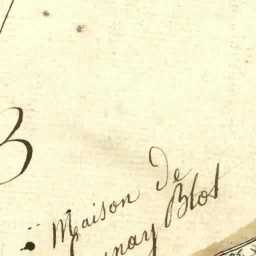 B
Maison De
nay Blot